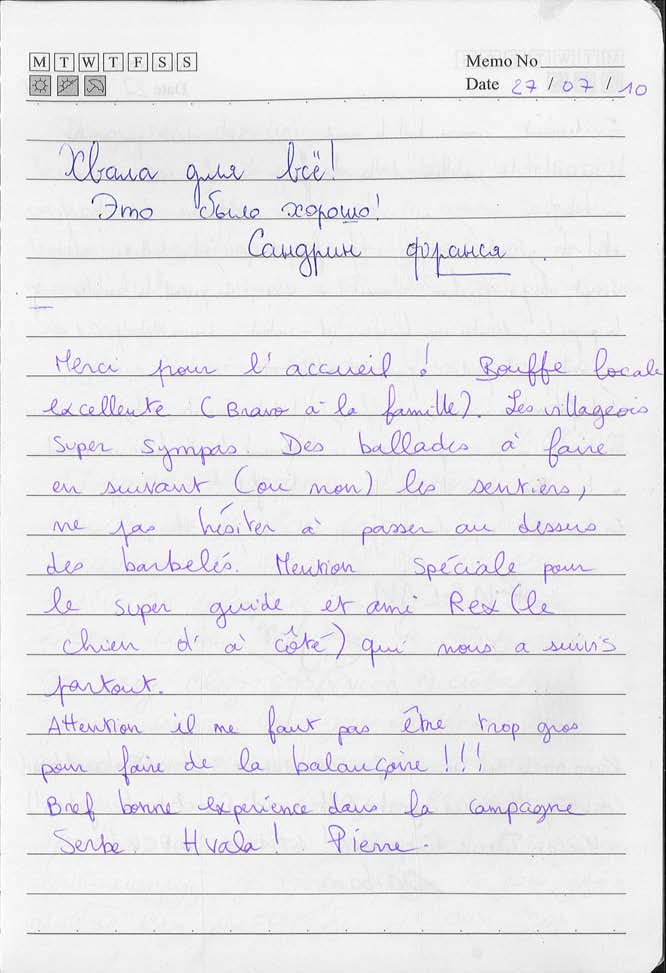 M T W T F S S
Memo No
Date 27 / 07 / 10
Хвала для всё!
Это было хорошо!
Сандрин франся.
Merci pour l'accueil! Bouffe locale
excellente (Bravo à la famille). Les villageois
super sympas. Des ballades à faire
en suivant (ou non) les sentiers,
ne pas hésiter à passer au dessus
des barbelés. Mention spéciale pour
le super guide et ami Rex (le
chien d'à côté) qui nous a suivis
partout.
Attention il ne faut pas être trop gros
pour faire de la balançoire !!!
Bref bonne expérience dans la campagne
Serbe. Hvala! Pierre.